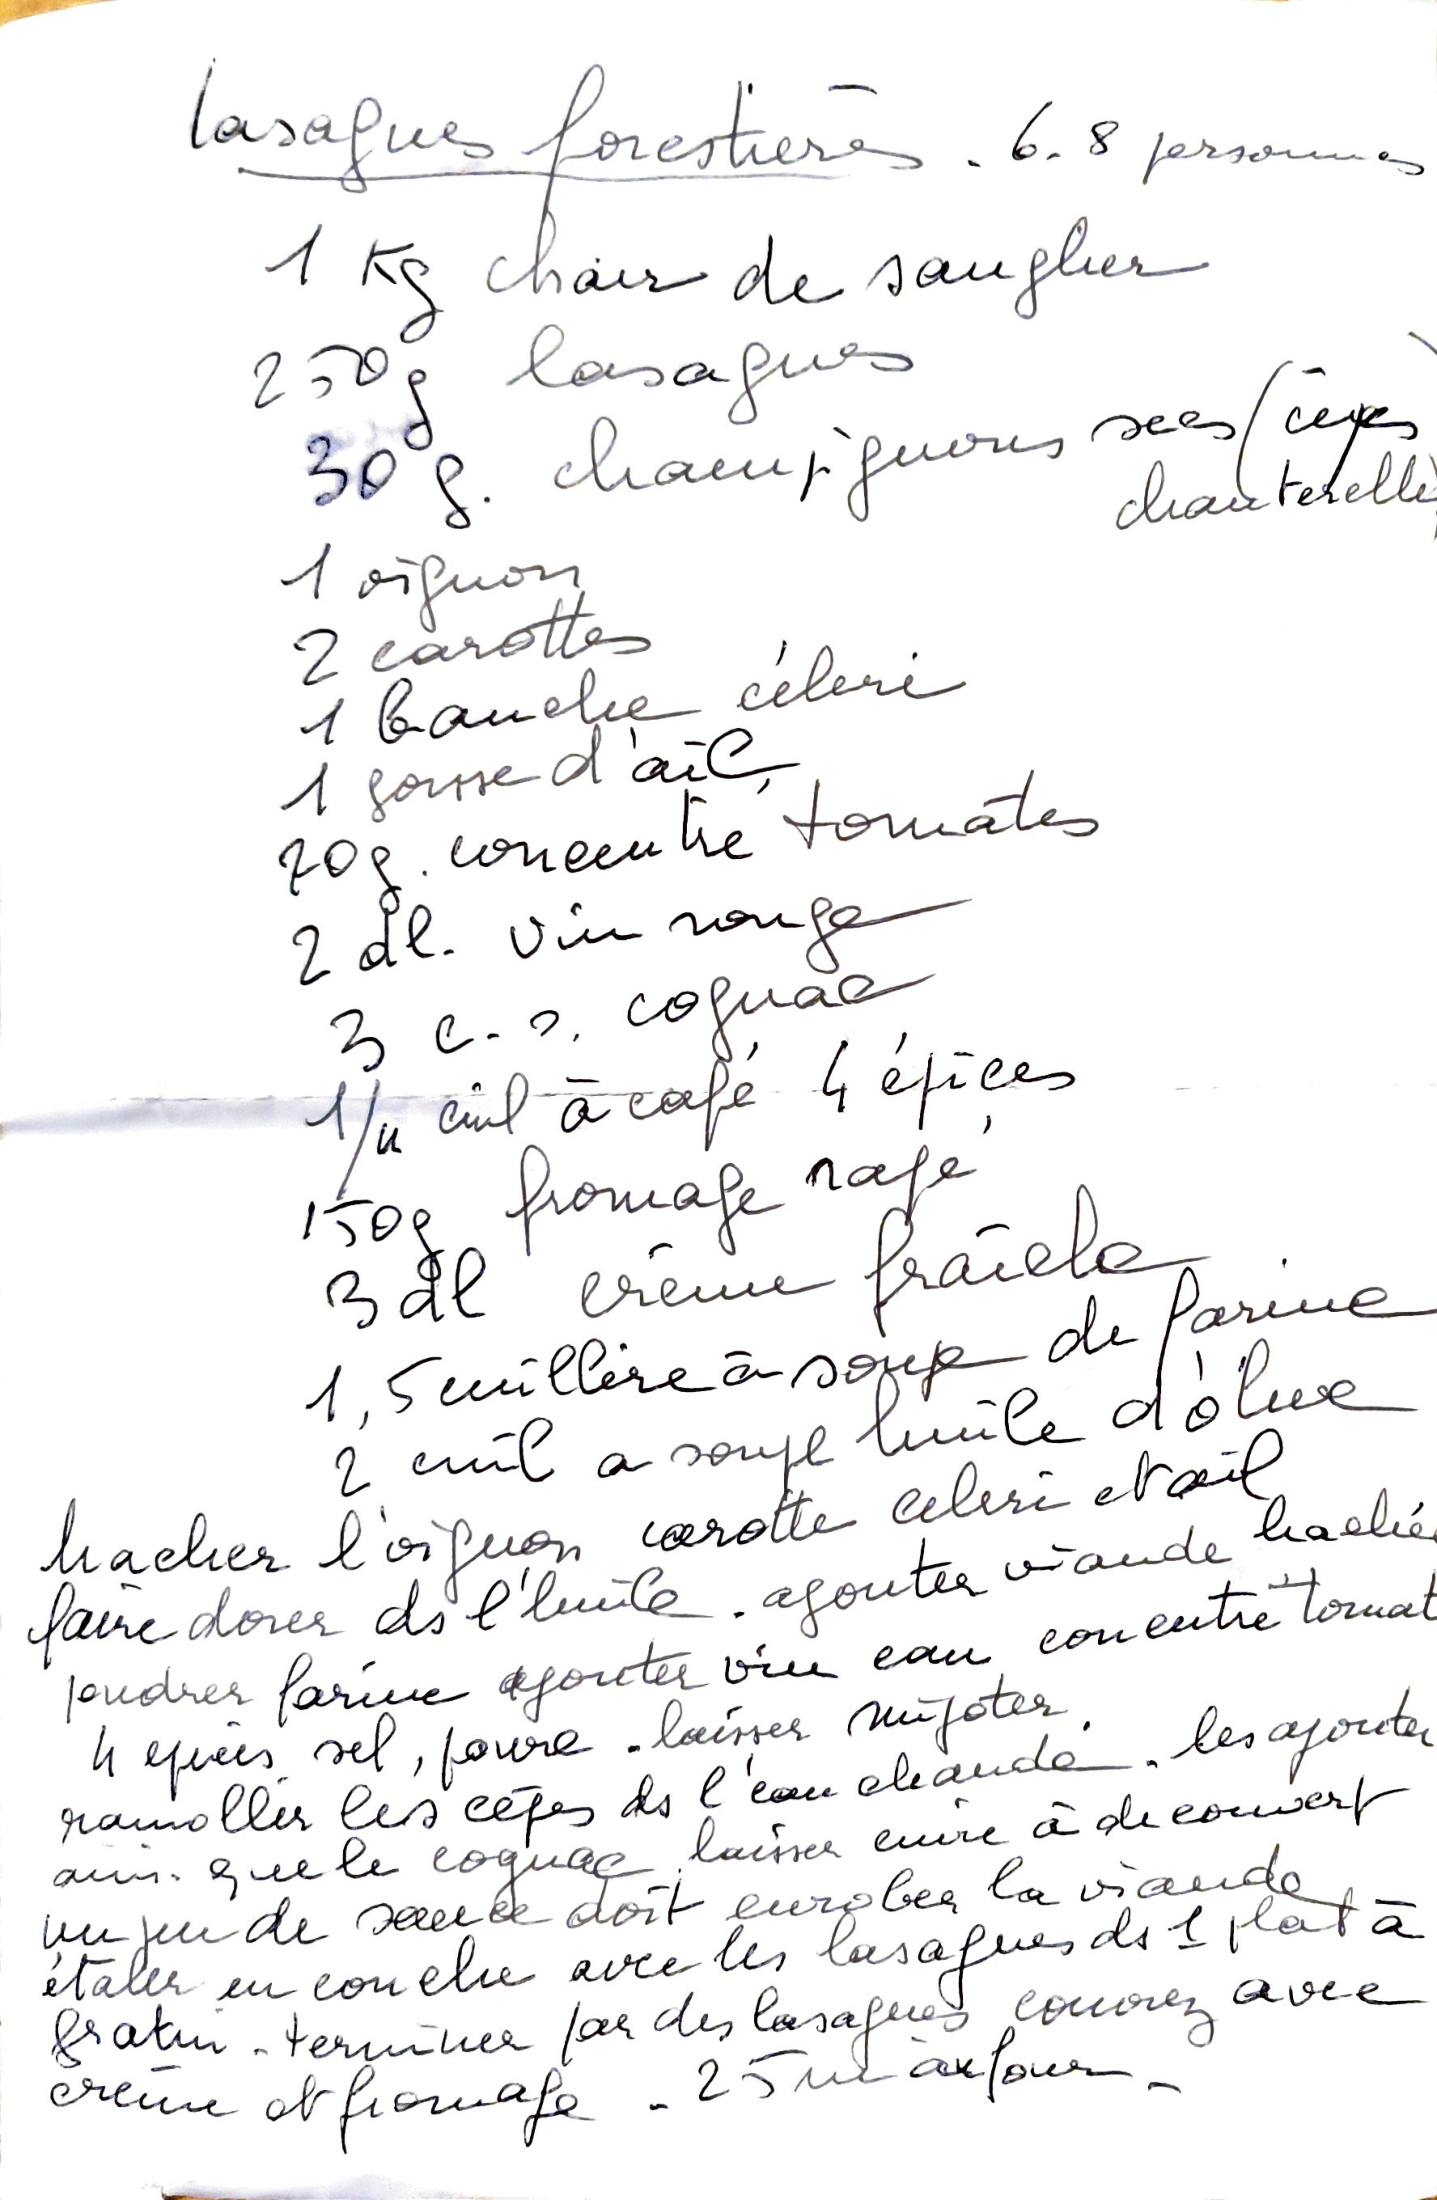 lasagnes forestières. 6-8 personnes
1 Kg chair de sanglier
250g lasagnes
30 g. champignons secs (cèpes)
chanterelle
1 oignon
2 carottes
1 branche céleri
1 gousse d'ail
70g. concentré tomates
2 dl. vin rouge
3 c. s. cognac
1/4 cuil à café 4 épices
150g fromage rapé
3 dl crème fraîche
1,5 cuillère à soupe de farine
2 cuil a soupe huile d'olive
hacher l'oignon carotte celeri et ail
faire dorer ds l'huile. ajouter viande hachée
poudrer farine ajouter vin eau concentré tomat
4 epices sel, poivre. laisser mijoter.
ramollir les cèpes ds l'eau chaude. les ajouter
ainsi que le cognac. laisser cuire à decouvert
un peu de sauce doit enrober la viande
étaler en couche avec les lasagnes ds 1 plat à
gratin. terminer par des lasagnes couvrez avec
crème et fromage. 25 m au four.